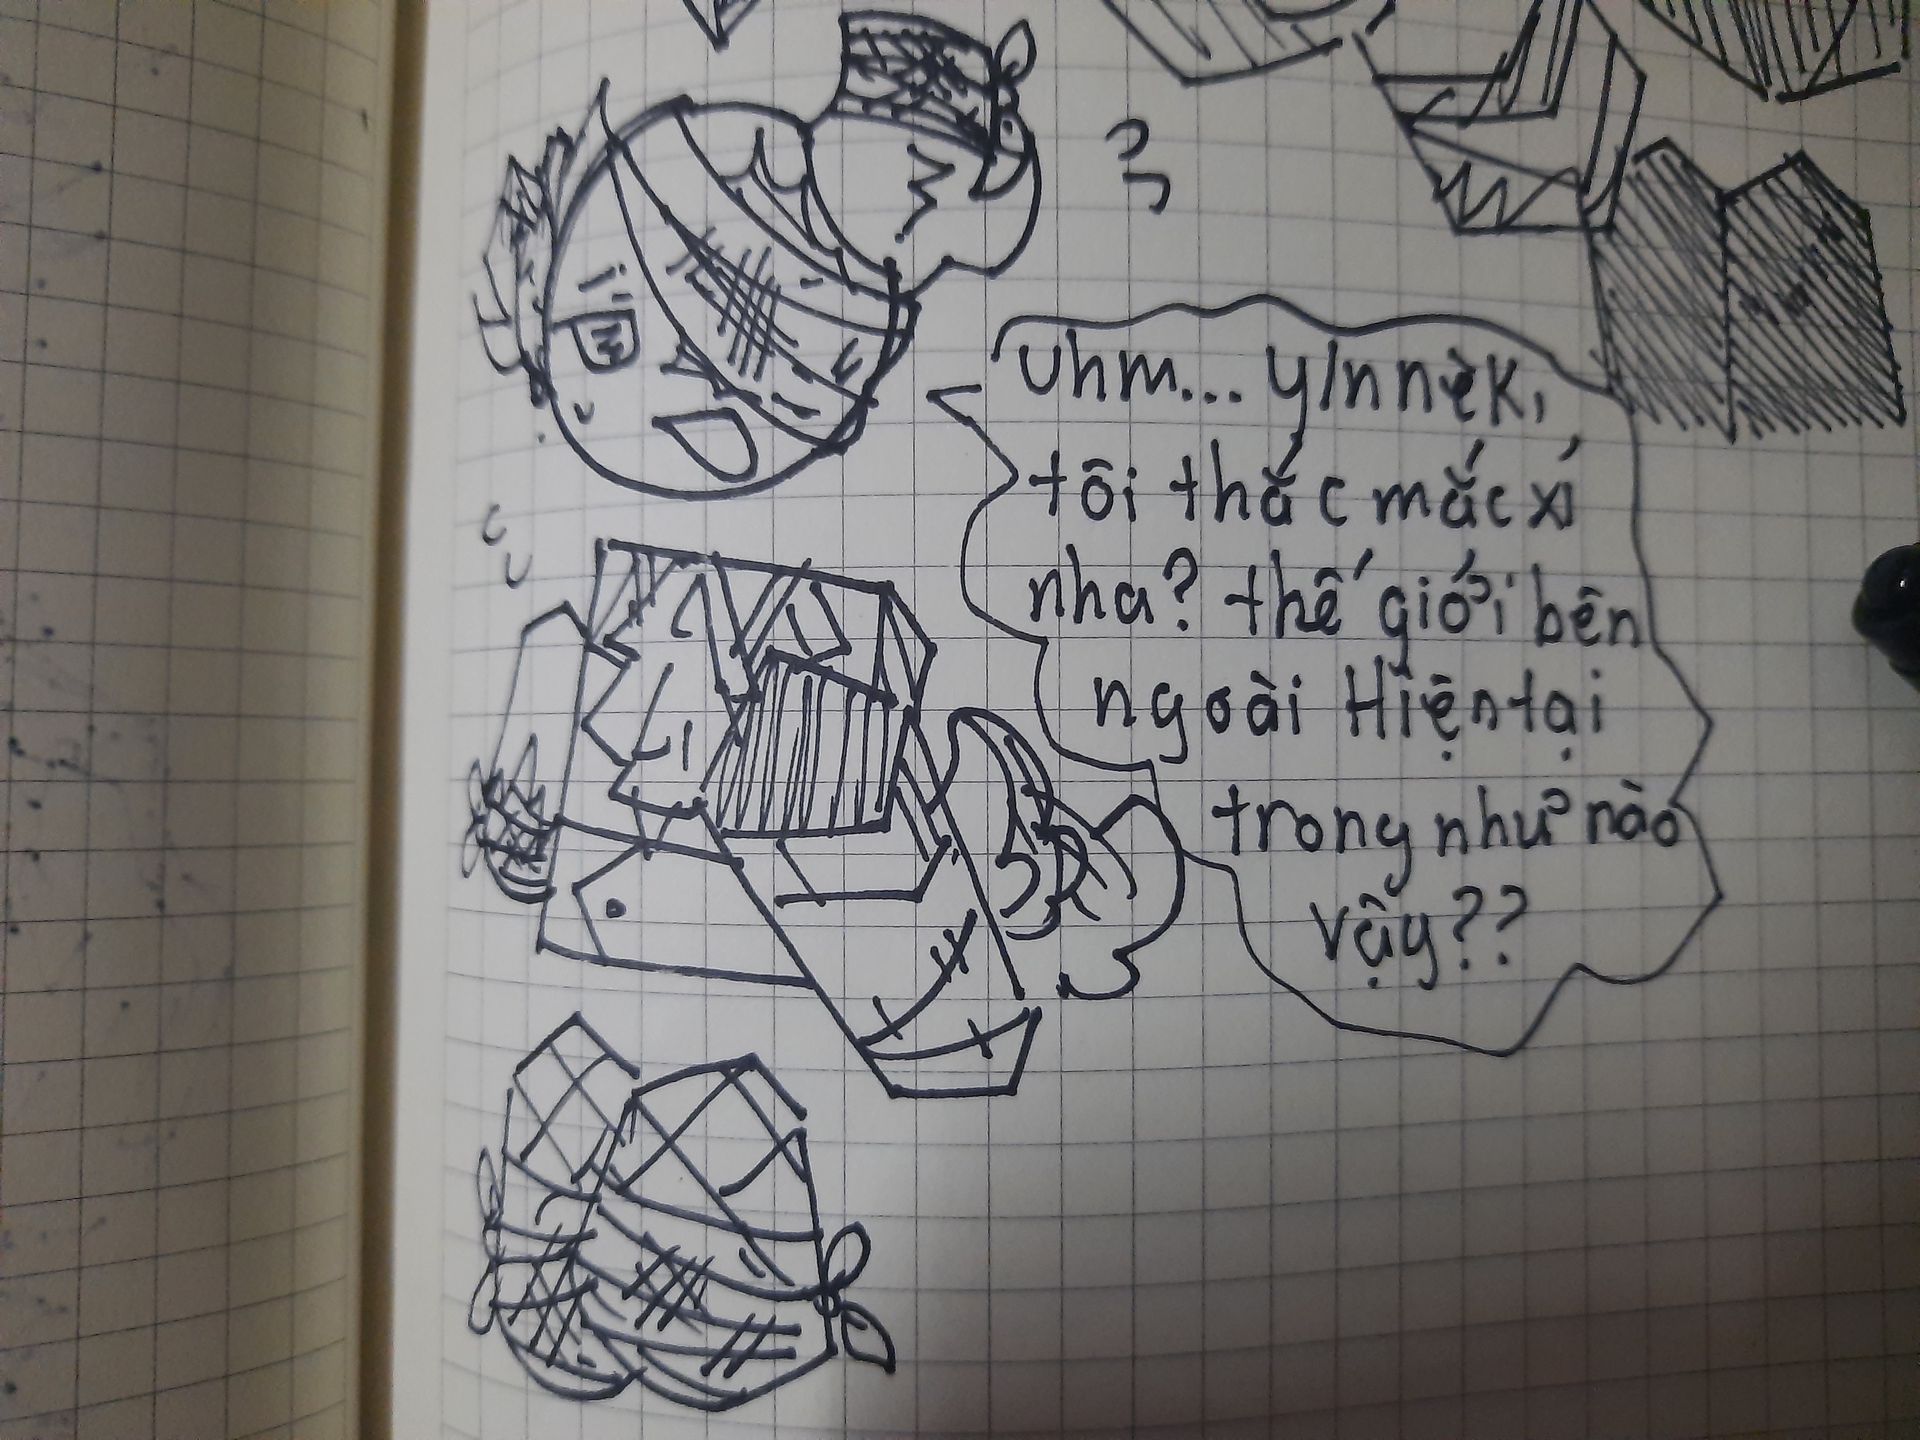 Uhm... yInnèk,
tôi thắc mắc xí
nha? thế giới bên
ngoài Hiện tại
trong như nào
vậy??